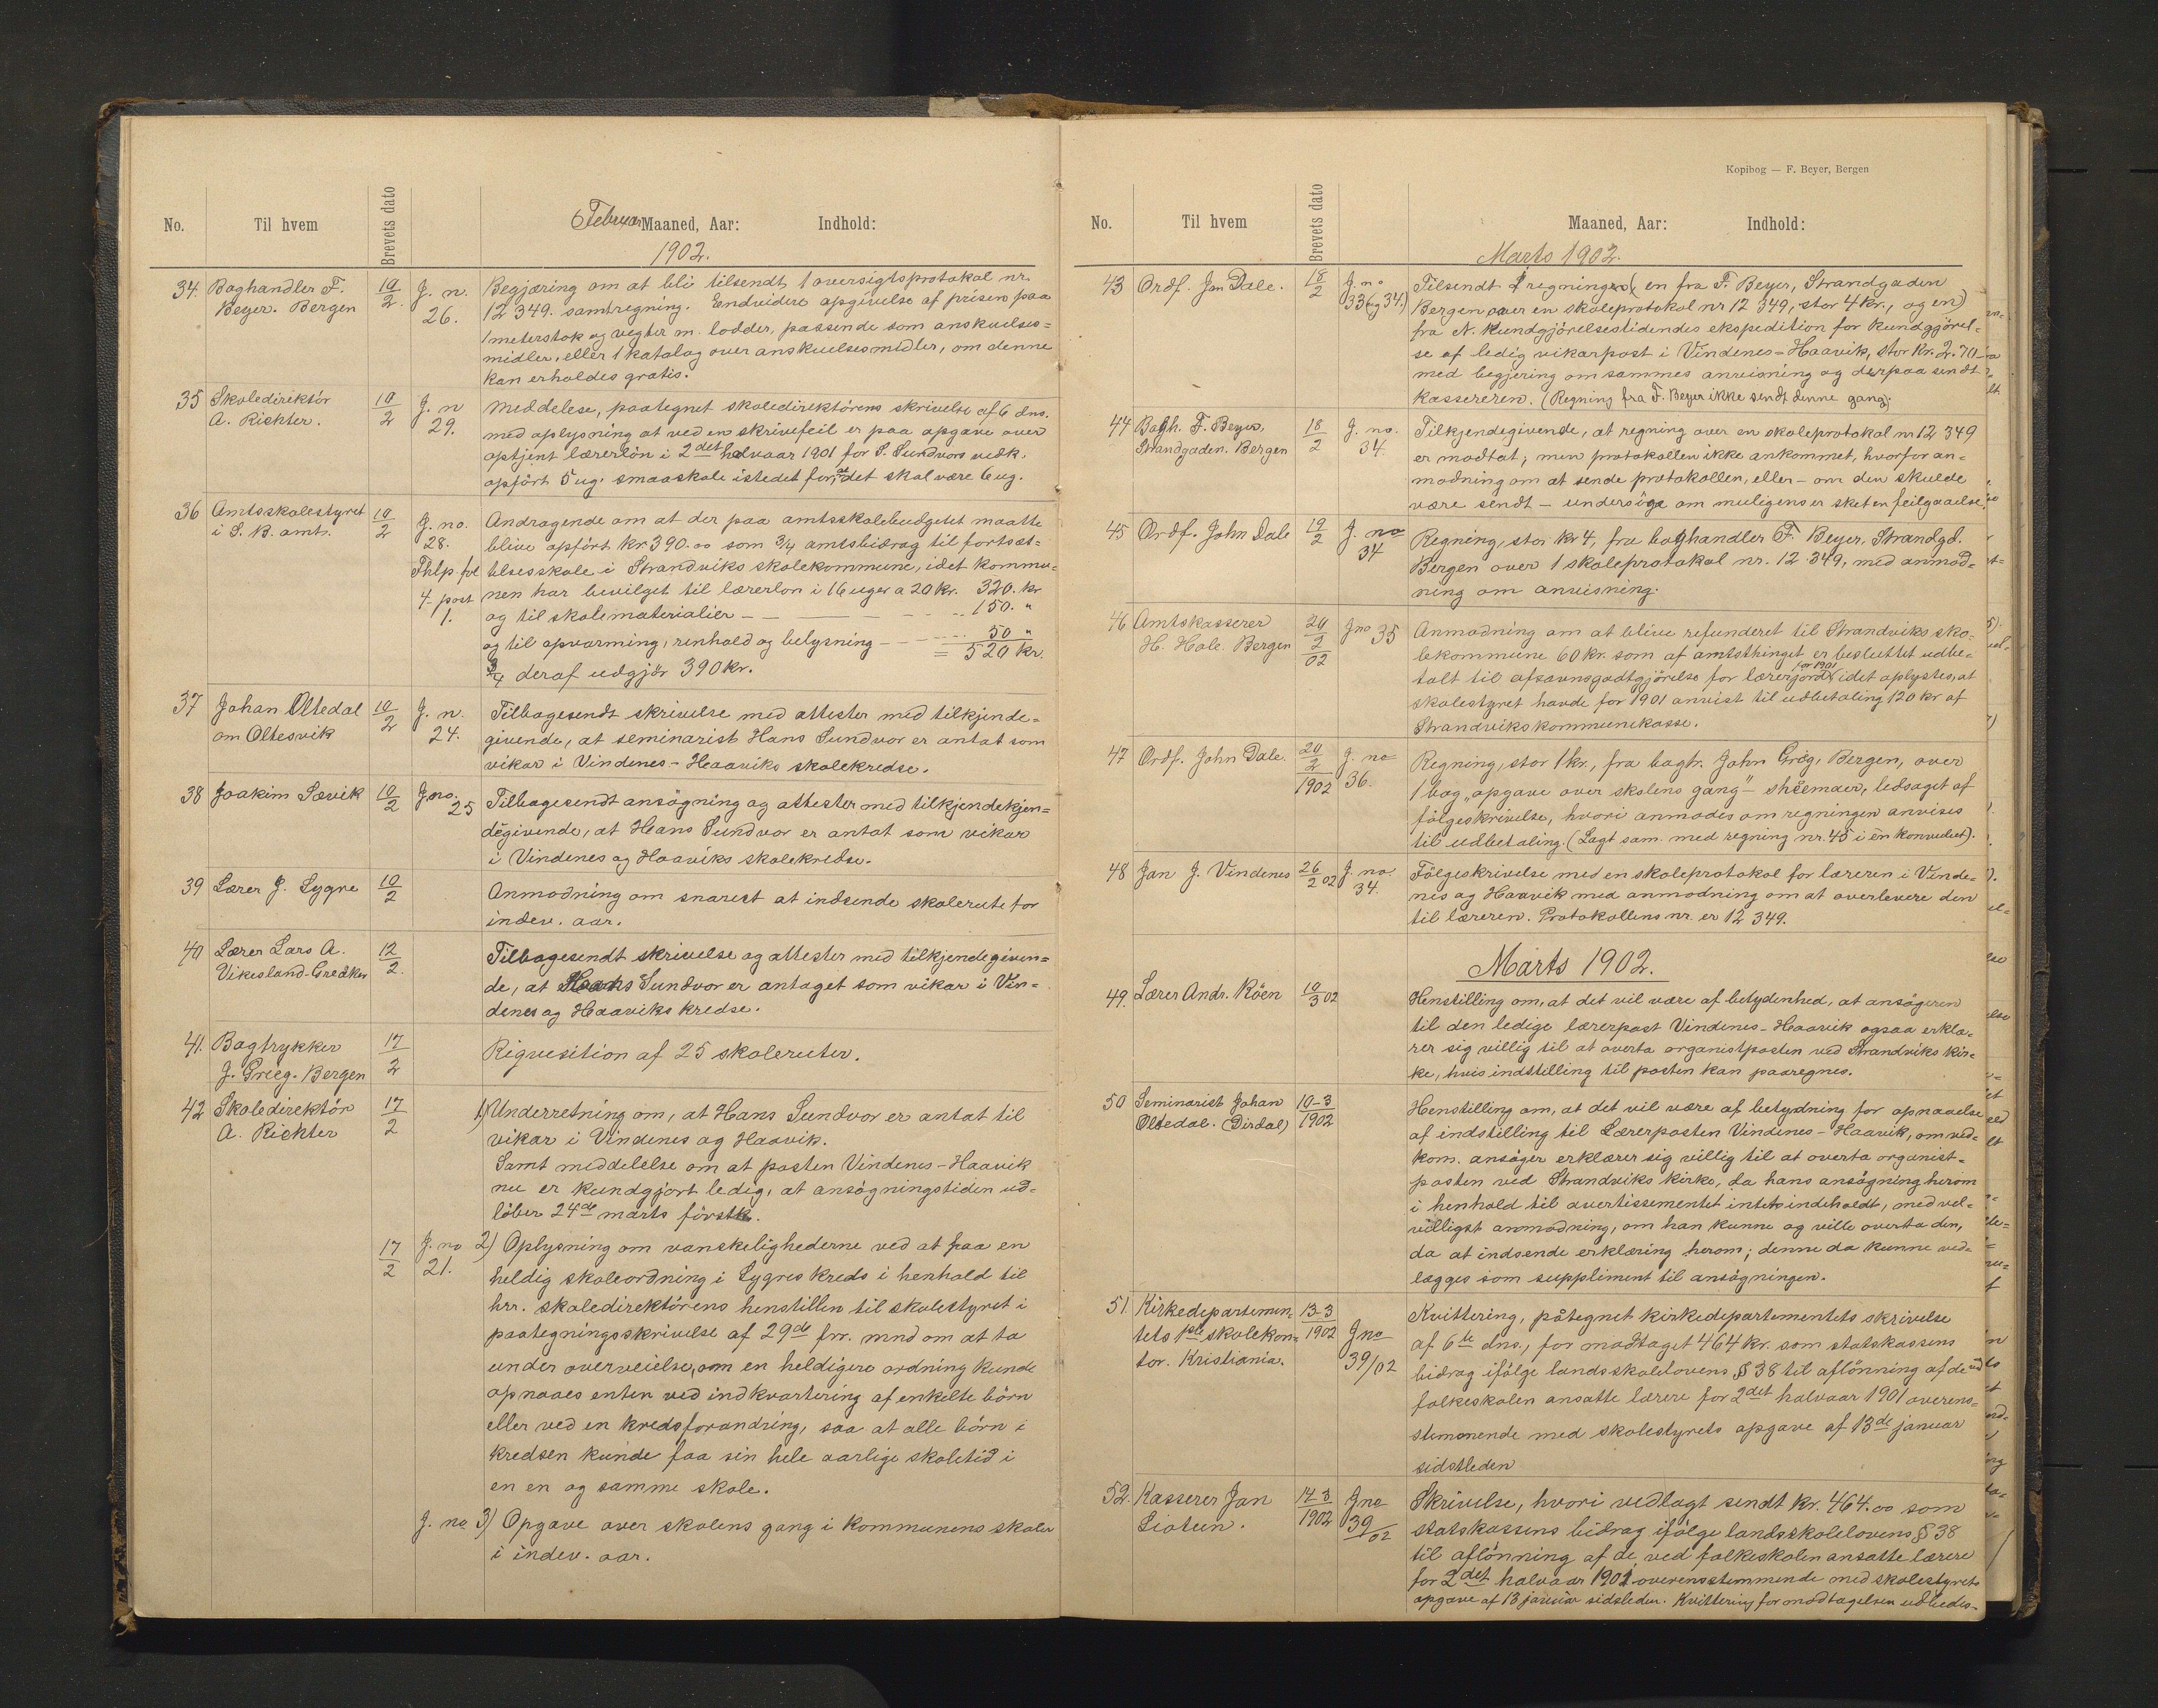 No. Til hvem Brevets dato Februar Maaned, Aar: Indhold:
1902.
34. Boghandler F. 10/2. J. n. Begjæring om at bli tilsendt 1 oversigtsprotokol nr.
Beyer. Bergen 26. 12 349. samt regning. Endvidere opgivelse af prisen paa
1 meterstok og vegter m. lodder, passende som anskuelses=
midler, eller 1 katalog over anskuelsesmidler, om denne
kan erholdes gratis.
35 Skoledirektör 10/2 J. n Meddelese, paategnet skoledirektörens skrivelse af 6 dns.
A. Richter. 29. med oplysning at ved en skrivefeil er paa opgave over
optjent lærerlön i 2det halvaar 1901 for S. Sundvors vedk.
opfört 5 ug. smaaskole istedet for, at det skal være 6 ug.
36 Amtsskolestyret 10/2 J. no. Andragende om at der paa amtsskolebudgetet maatte
i S. B. amt. 28. blive opfört kr 390.00 som 3/4 amtsbidrag til fortsæt=
Fhlp fol telsesskole i Strandviks skolekommune, idet kommu=
4. post nen har bevilget til lærerlon i 16 uger a 20 kr. 320. kr
1. og til skolematerialier — — — 150. "
og til opvarming, renhold og belysning — — 50 "
= 520 kr.
3/4 deraf udgjör 390 kr.
37 Johan Oltedal 10/2 J. n. Tilbagesendt skrivelse med attester med tilkjende=
om Oltesvik 24. givende, at seminarist Hans Sundvor er antat som
vikar i Vindenes - Haaviks skolekredse.
38 Joakim Sævik 10/2 J no. 25 Tilbagesendt ansögning og attester med tilkjendekjen=
degivende, at Hans Sundvor er antat som vikar
i Vindenes og Haaviks skolekredse.
39 Lærer J. Lygre 10/2 Anmodning om snarest at indsende skolerute for
indev. aar.
40 Lærer Lars A. 12/2. Tilbagesendt skrivelse og attester med tilkjendegiven=
Vikesland-Greaker de, at Hans Sundvor er antaget som vikar i Vin=
denes og Haaviks kredse.
41. Bogtrykker 17/2 Riqvisition af 25 skoleruter.
J. Grieg. Bergen
42 Skoledirektör 17/2 1) Underretning om, at Hans Sundvor er antat til
A. Richter vikar i Vindenes og Haavik.
Samt meddelelse om at posten Vindenes - Haavik
nu er kundgjort ledig, at ansögningstiden ud=
löber 24de marts förstk.
17/2 J. no 21. 2) Oplysning om vanskelighederne ved at faa en
heldig skoleordning i Lygres kreds i henhold til
hrr. skoledirektörens henstillen til skolestyret i
paategningsskrivelse af 29de frr. mnd om at ta
under overveielse, om en heldigere ordning kunde
opnaaes enten ved indkvartering af enkelte börn
eller ved en kredsforandring, saa at alle börn i
kredsen kunde faa sin hele aarlige skoletid i
en en og samme skole.
J. no 3) Opgave over skolens gang i kommunens skoler
i indev. aar.
Kopibog — F. Beyer, Bergen
No. Til hvem Brevets dato Maaned, Aar: Indhold:
Marts 1902.
43 Ordf. Jon Dale. 18/2 J. no Tilsendt regninger (en fra F. Beyer, Strandgaden
33 (og 34.) Bergen over en skoleprotokol nr 12 349, stor 4 kr., og en)
fra N. Kundgjörelsestidendes ekspedition for kundgjörel=
se af ledig vikarpost i Vindenes - Haavik, stor kr. 2.70
med begjering om sammes anvisning og derpaa sendt
kassereren. (Regning fra F. Beyer ikke sendt denne gang).
44 Bogh. F. Beyer, 18/2 J. no. Tilkjendegivende, at regning over en skoleprotokol nr 12 349
Strandgaden. Bergen 34. er modtat; men protokollen ikke ankommet, hvorfor an=
modning om at sende protokollen, eller — om den skulde
være sendt — undersöge om muligens er sket en feilgaaelse.
45 Ordf. John Dale 19/2 J. no 34 Regning, stor kr 4, fra boghandler F. Beyer, Strandgd.
Bergen over 1 skoleprotokol nr. 12 349, med anmod=
ning om anvisning.
46 Amtskasserer 20/2 02 J no 35 Anmodning om at blive refunderet til Strandviks sko=
H. Hole. Bergen lekommune 60 kr. som af amtsthinget er besluttet udbe=
talt til afsavnsgodtgjörelse for lærerjord for 1901, idet oplystes, at
skolestyret havde for 1901 anvist til udbetaling 120 kr af
Strandviks kommunekasse.
47 Ordf. John Dale. 20/2 1902 J. no 36. Regning, stor 1 kr., fra bogtr. John Grieg, Bergen, over
1 bog „opgave over skolens gang"- sheemaer, ledsaget af
fölgeskrivelse, hvori anmodes om regningen anvises
til udbetaling. (Lagt sam. med regning nr. 45 i én konvolut).
48 Jon J. Vindenes 26/2 02 J. no. 34. Fölgeskrivelse med en skoleprotokol for læreren i Vinde=
nes og Haavik med anmodning om at overlevere den
til læreren. Protokollens nr. er 12 349.
Marts 1902.
49. Lærer Andr. Röen 10/3 02 Henstilling om, at det vil være af betydenhed, at ansögeren
til den ledige lærerpost Vindenes - Haavik ogsaa erklæ=
rer sig villig til at overta organistposten ved Strandviks kir=
ke, hvis indstilling til posten kan paaregnes.
50 Seminarist Johan 10-3 1902 Henstilling om, at det vil være af betydning for opnaaelse
Oltedal. (Dirdal) af indstilling til Lærerposten Vindenes - Haavik, om ved=
kom. ansöger erklærer sig villig til at overta organist=
posten ved Strandviks kirke, da hans ansögning herom
i henhold til avertissementet intet indeholdt, med vel=
villigst anmodning, om han kunne og ville overta den,
da at indsende erklæring herom; denne da kunne ved=
lægges som suppliment til ansögningen.
51. Kirkedepartemen= 13-3 1902 Kvittering, påtegnet kirkedepartementets skrivelse
tets 1ste skolekon= J no 39/02 af 6te dns., for modtaget 464 kr. som statskassens
tor. Kristiania. bidrag ifölge landsskolelovens § 38 til aflönning af de ved
folkeskolen ansatte lærere for 2det halvaar 1901 overens=
stemmende med skolestyrets opgave af 13de januar
sidstleden
52. Kasserer Jon 14-3 1902 J no 39/02 Skrivelse, hvori vedlagt sendt kr. 464.00 som
Lioteen. statskassens bidrag ifölge landsskolelovens § 38
til aflönning af de ved folkeskolen ansatte lærere
for 2det halvaar 1901 overensstemmende med skolestyrets
opgave af 13 januar sidsleden. Kvittering for modtagelsen udbedes-